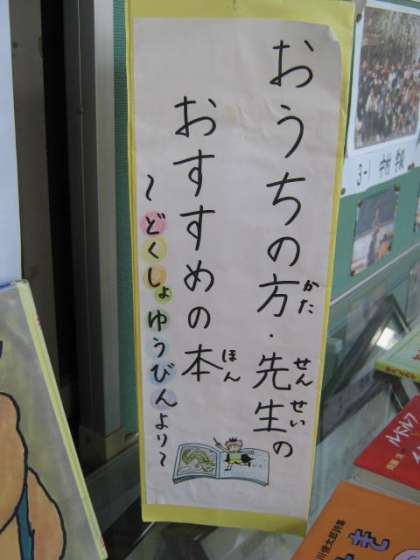 おうちの方・先生の
かた
せんせい
おすすめの本
ほん
～どくしょゆうびんより～
3-1
ルスルン